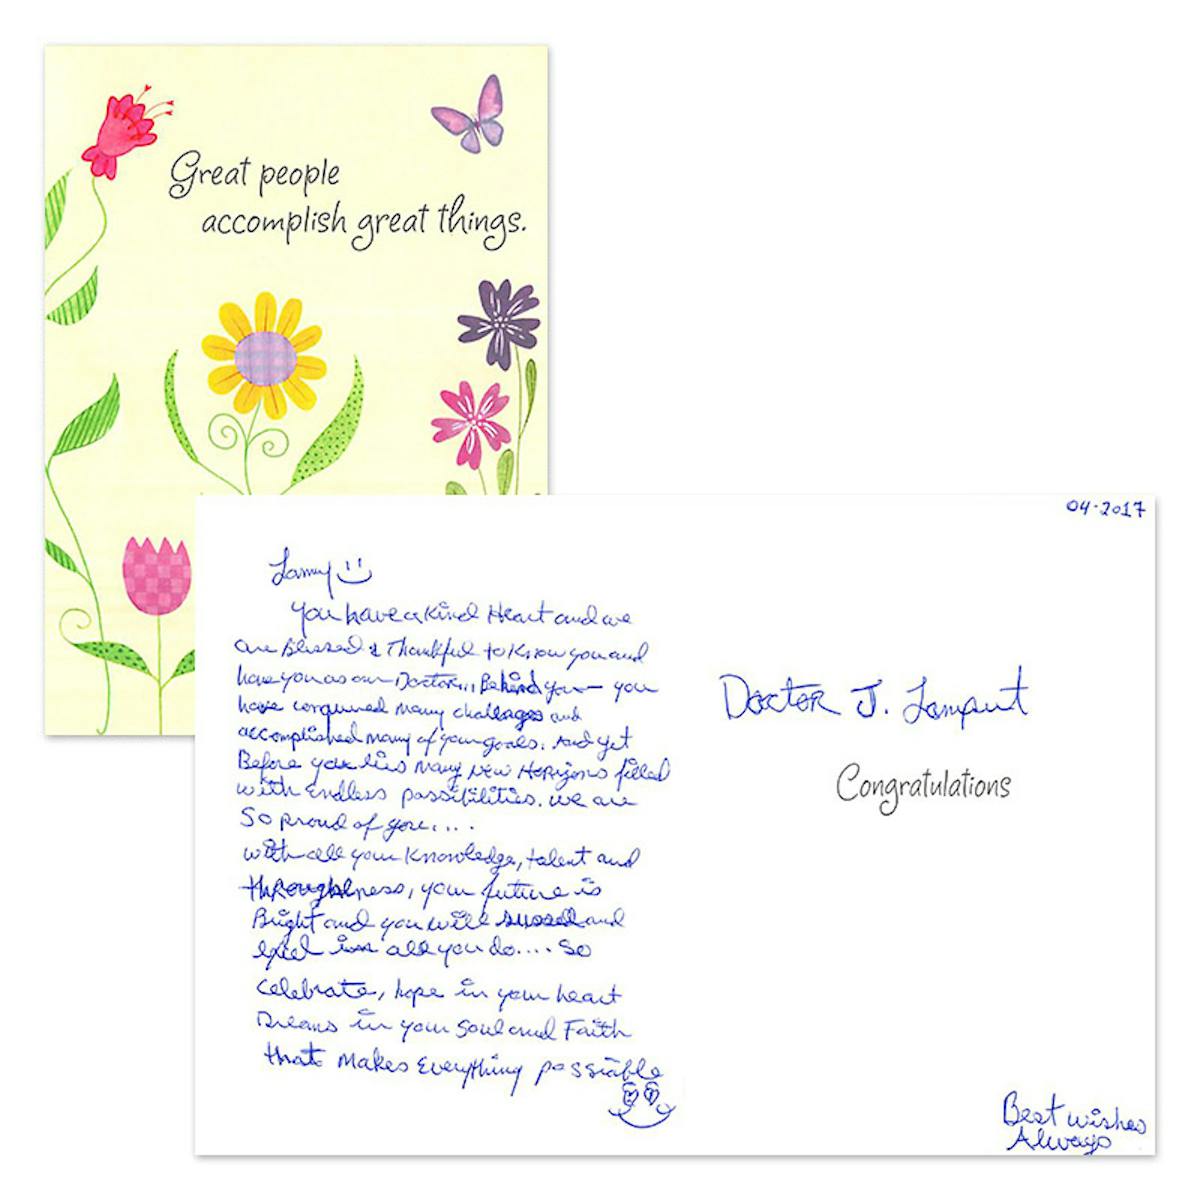 Great people
accomplish great things.
04-2017
You have a Kind Heart and we
are Blessed & Thankful to Know you and
have you as our Doctor... Behind you — you
have conquered many challenges and
accomplished many of your goals. And yet
Before you lies many new Horizons filled
with endless possibilities. we are
so proud of you....
with all your Knowledge, talent and
throughness, your future is
Bright and you will and
excel in all you do.... So
celebrate, hope in your heart
Dreams in your soul and Faith
that makes Everything possiable
Doctor J. Lampert
Congratulations
Best wishes
Always